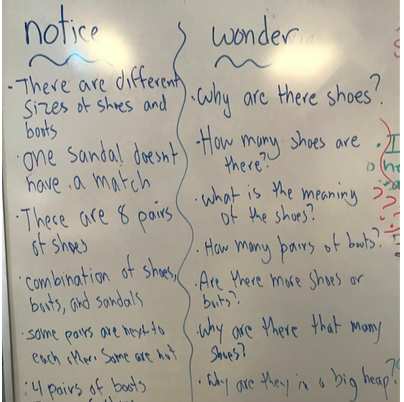 notice
- There are different
sizes of shoes and
boots
· one sandal doesn't
have a match
· There are 8 pairs
of shoes
· combination of shoes,
boots, and sandals
· some pairs are next to
each other. Some are not
· 4 pairs of boots
wonder
· Why are there shoes?
· How many shoes are
there?
· What is the meaning
of the shoes?
· How many pairs of boots?
· Are there more shoes or
boots?
· Why are there that many
shoes?
· Why are they in a big heap?